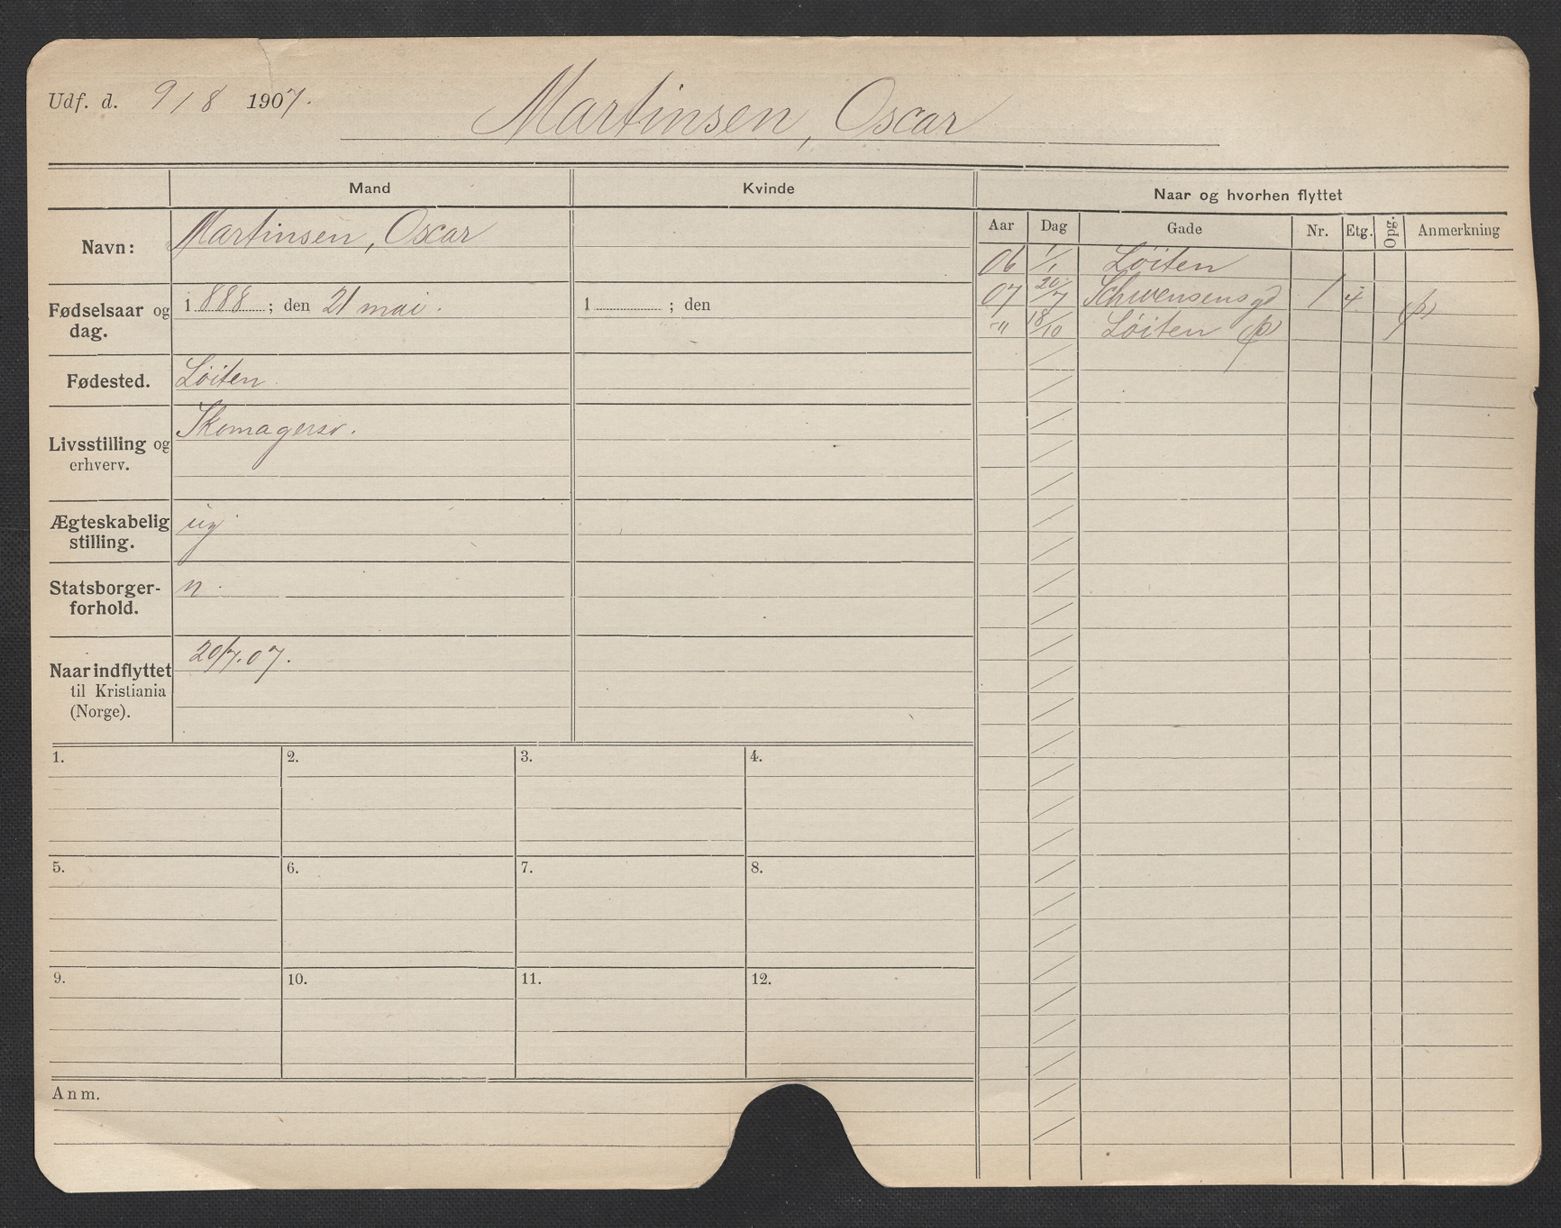 Udf. d. 9/8 1907.
Martinsen, Oscar
Mand
Kvinde
Navn:
Martinsen, Oscar
Fødselsaar og dag.
i 1888 ; den 21 mai.
i ; den
Fødested.
Löiten
Livsstilling og erhverv.
Skomagersv.
Ægteskabelig stilling.
ug
Statsborger-
forhold.
n.
Naar indflyttet
til Kristiania
(Norge).
20/7.07.
1. 2. 3. 4.
5. 6. 7. 8.
9. 10. 11. 12.
Anm.
Naar og hvorhen flyttet
Aar Dag Gade Nr. Etg. Opg. Anmerkning
06 1/1 Löiten
07 20/7 Schwensensgd 1 4 (p)
" 18/10 Löiten (p)